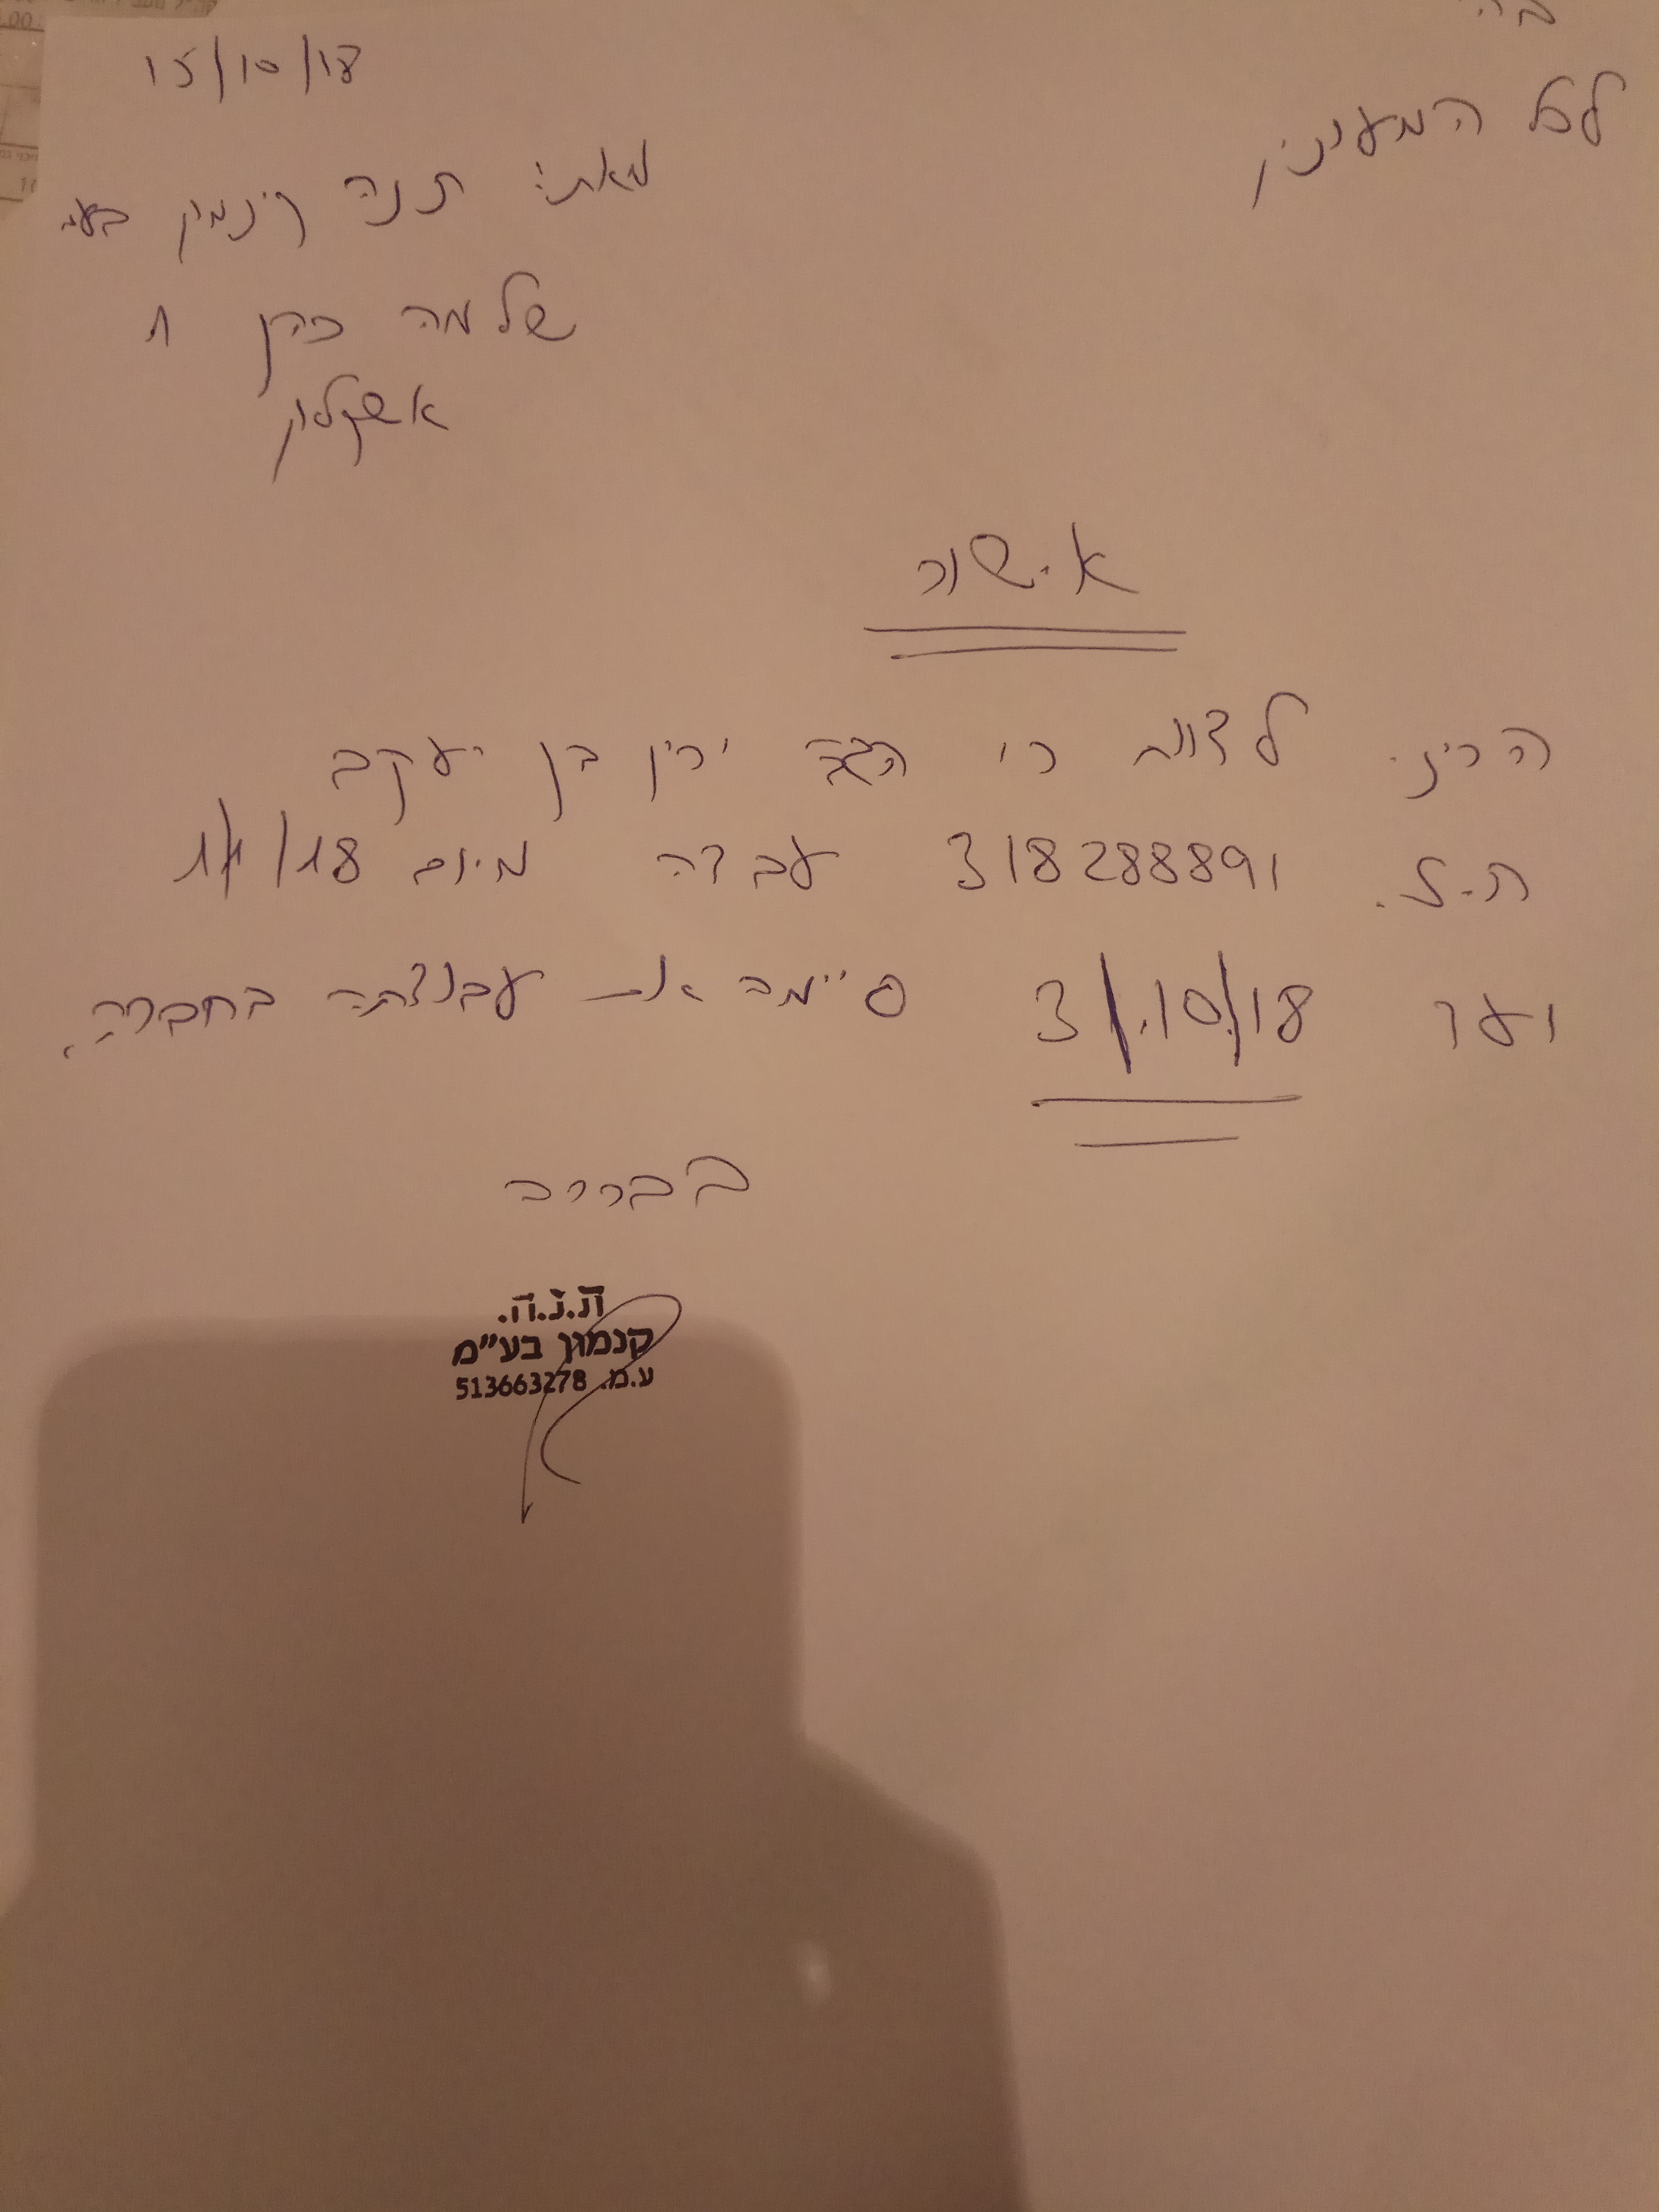 בה
15/10/18
לכל המעונין
מאת: תנה קינמון בעמ
שלמה כהן 1
אשקלון
אישור
הריני לדווח כי הגב ירין בן יעקב
ת.ז. 318288891 עבדה מיום 1/1/18
ועד 3/.10/18 סיימה את עבודתה בחברה.
בברכה
ת.נ.ה.
קנמון בע"מ
ע.מ. 513663278